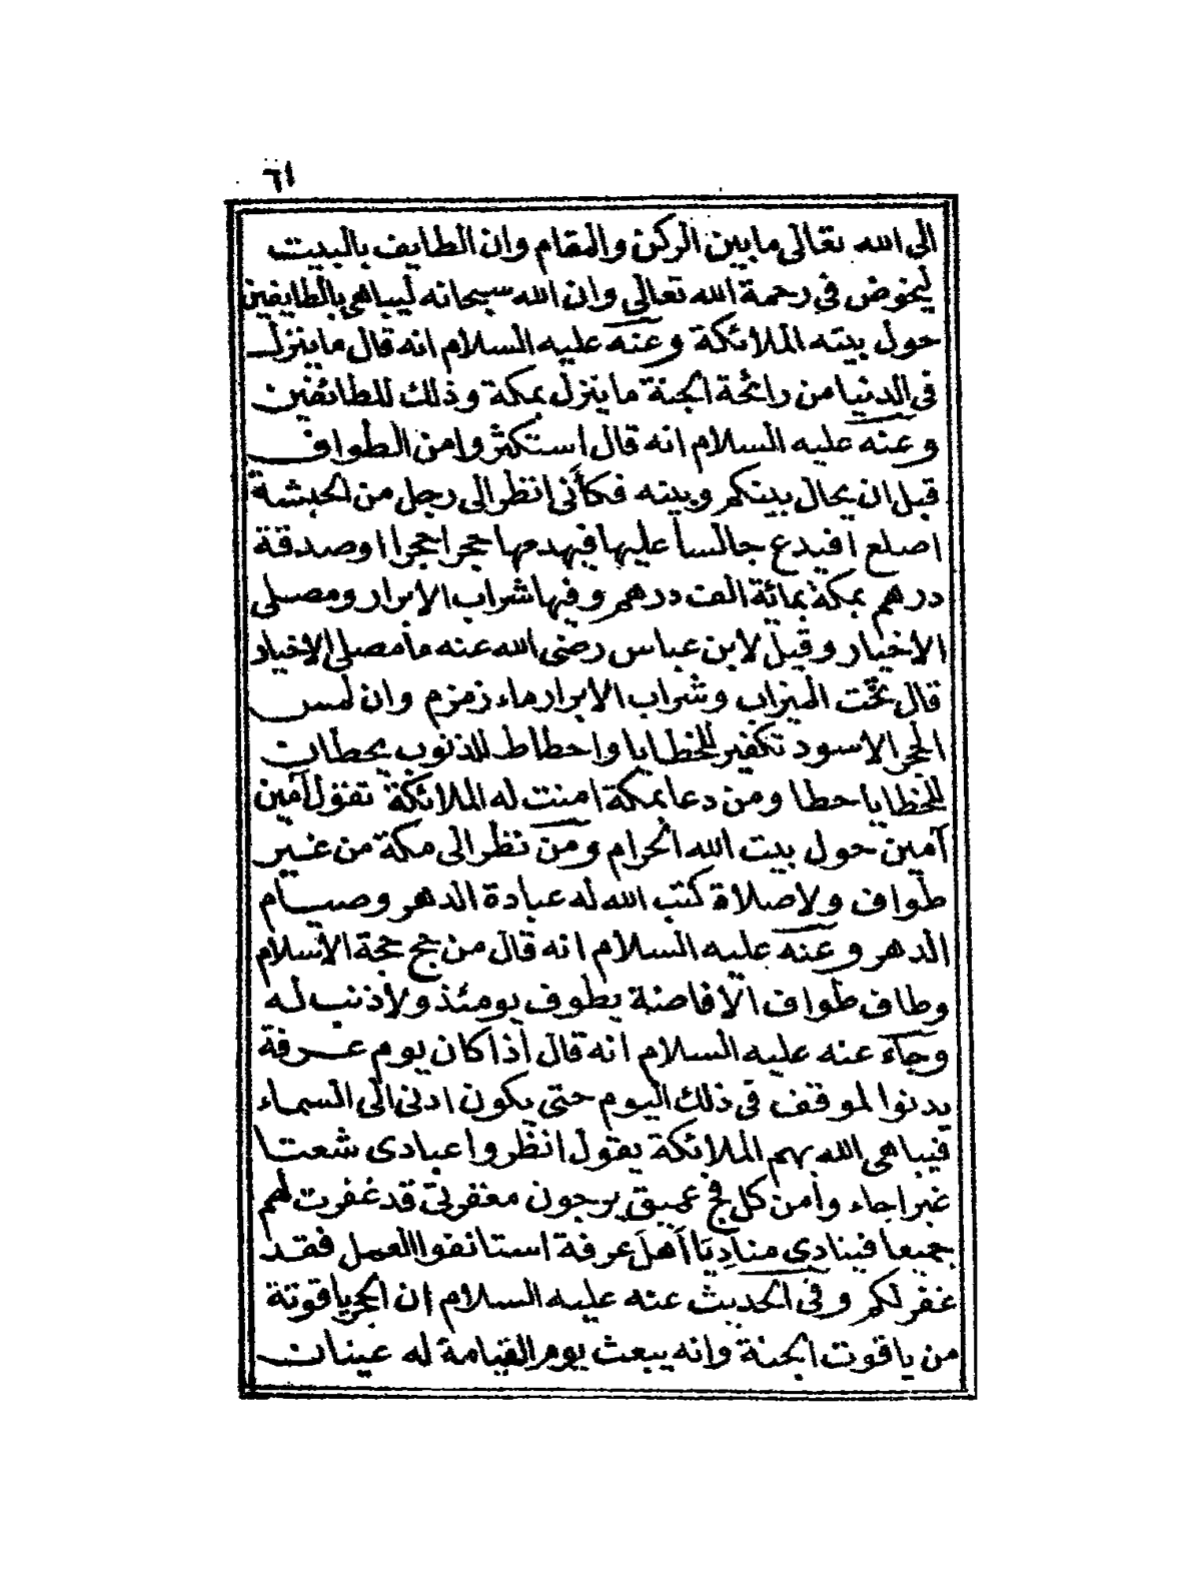 ٦١
الى الله تعالى ما بين الركن والمقام وان الطايف بالبيت
ليخوض في رحمة الله تعالى وان الله سبحانه ليباهي بالطايفين
حول بيته الملائكة وعنه عليه السلام انه قال ما ينزل
في الدنيا من رائحة الجنة ما ينزل بمكة وذلك للطائفين
وعنه عليه السلام انه قال استكثروا من الطواف
قبل ان يحال بينكم وبينه فكأني انظر الى رجل من الحبشة
اصلع افيدع جالسا عليها فيهدمها حجرا حجرا اوصدقة
درهم بمكة بمائة الف درهم وفيها شراب الابرار ومصلى
الاخيار وقيل لابن عباس رضي الله عنه ما مصلى الاخيار
قال تحت الميزاب وشراب الابرار ماء زمزم وان لمس
الحجر الاسود تكفير للخطايا واحطاط للذنوب يحطان
للخطايا حطا ومن دعا بمكة امنت له الملائكة تقول آمين
آمين حول بيت الله الحرام ومن نظر الى مكة من غير
طواف ولا صلاة كتب الله له عبادة الدهر وصيام
الدهر وعنه عليه السلام انه قال من حج حجة الاسلام
وطاف طواف الافاضة يطوف يومئذ ولا ذنب له
وجاء عنه عليه السلام انه قال اذا كان يوم عرفة
يدنوا لموقف في ذلك اليوم حتى يكون ادنى الى السماء
فيباهي الله بهم الملائكة يقول انظروا عبادى شعثا
غبرا جاء وامن كل فج عميق يرجون مغفرتي قد غفرت لهم
جميعا فينادي مناد يا أهل عرفة استانفوا العمل فقد
غفر لكم وفي الحديث عنه عليه السلام ان الحجر ياقوتة
من ياقوت الجنة وانه يبعث يوم القيامة له عينان